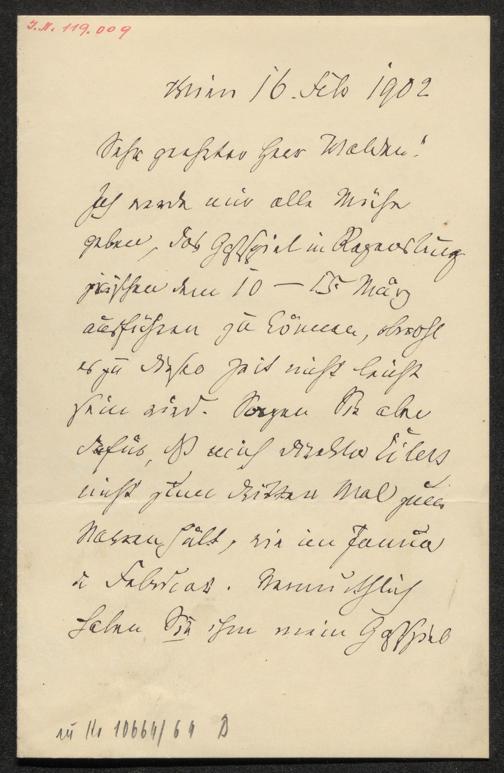 J.N. 119.009
Wien 16. Feb 1902
Sehr geehrter Herr Walden!
Ich werde mir alle Mühe
geben, das Gastspiel in Regensburg
zwischen dem 10 – 15 März
ausführen zu können, obwohl
es zu dieser Zeit nicht leicht
sein wird. Sorgen Sie aber
dafür, daß mich Direktor Eilers
nicht zum dritten Mal zum
Narren hält, wie im Januar
u Februar. Vermuthlich
haben Sie ihm mein Gastspiel
zu Nr 10664/64 B